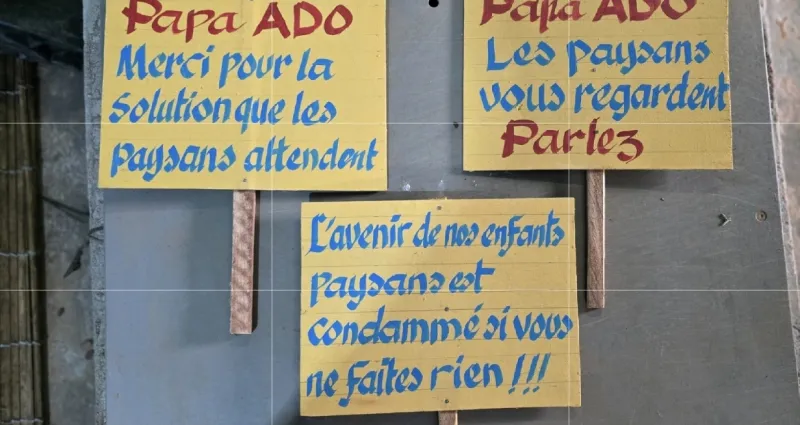 Papa ADO
Merci pour la
solution que les
paysans attendent
Papa ADO
Les paysans
vous regardent
Partez
L'avenir de nos enfants
paysans est
condammé si vous
ne faites rien !!!